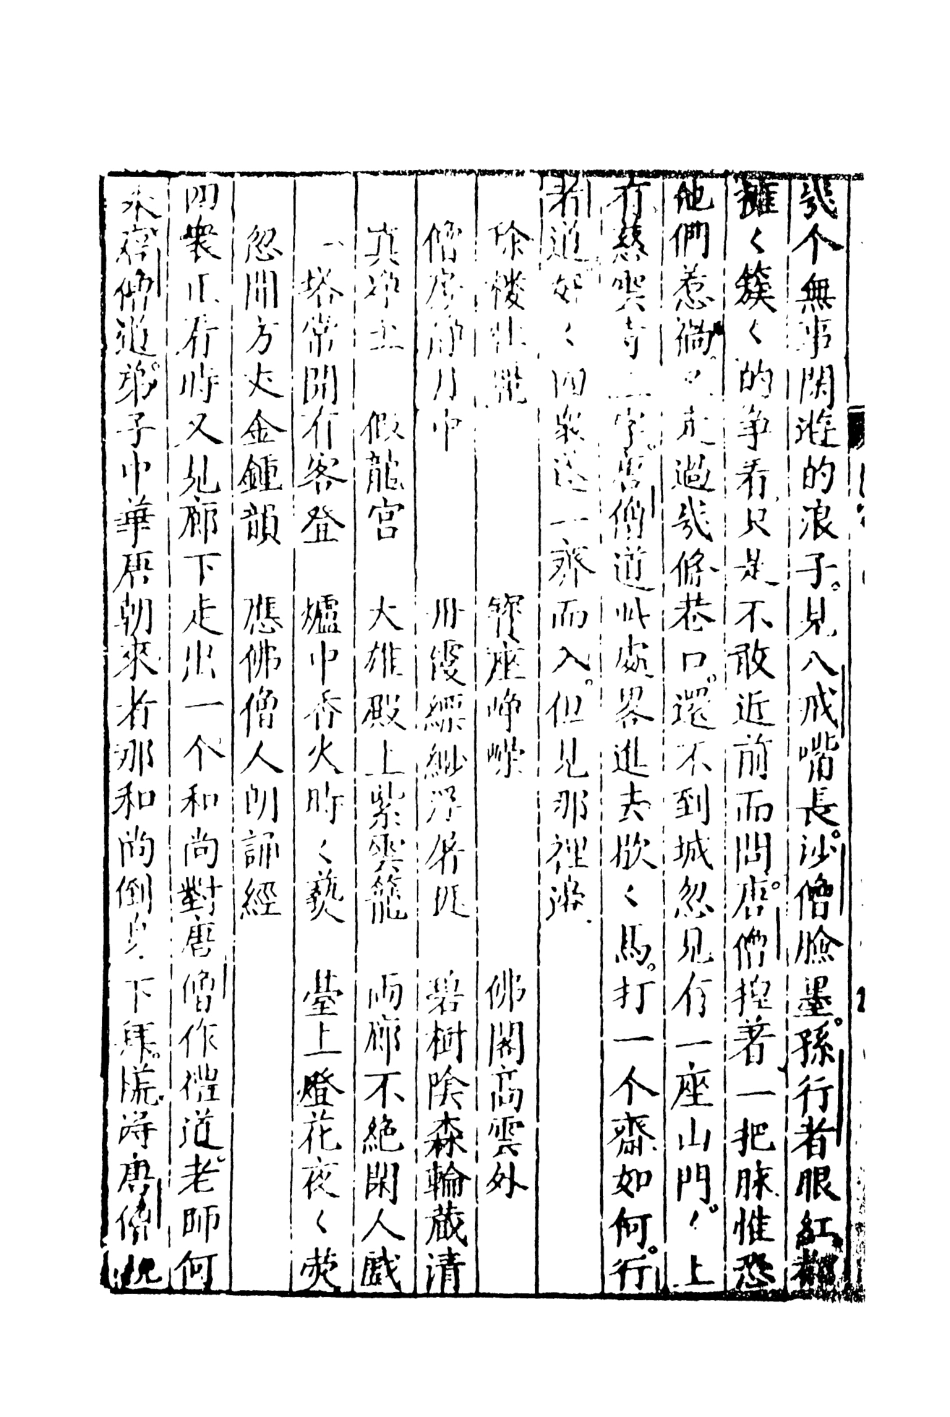 幾个無事閑遊的浪子。見八戒嘴長。沙僧臉墨。孫行者眼紅。都
擁〱簇〱的争看。只是不敢近前而問。唐僧捏着一把脉。惟恐
他們惹禍。又走過幾條巷口。還不到城。忽見有一座山門。〱上
有慈雲寺三字。唐僧道此處畧進去歇〱馬。打一个齋如何。行
者道好〱。四衆遂一齊而入。但見那裡邊
珍樓壯麗 寳座崢嶸 佛閣高雲外
僧房静月中 丹霞縹緲浮屠挺 碧樹陰森輪藏清
真净土 假龍宫 大雄殿上紫雲籠 兩廊不絶閑人戯
一塔常開有客登 爐中香火時〱爇 臺上燈花夜〱熒
忽聞方丈金鍾韻 應佛僧人朗誦經
四衆正看時又見廊下走出一个和尚對唐僧作禮道。老師何
來。唐僧道。弟子中華唐朝來者。那和尚倒身下拜。慌得唐僧